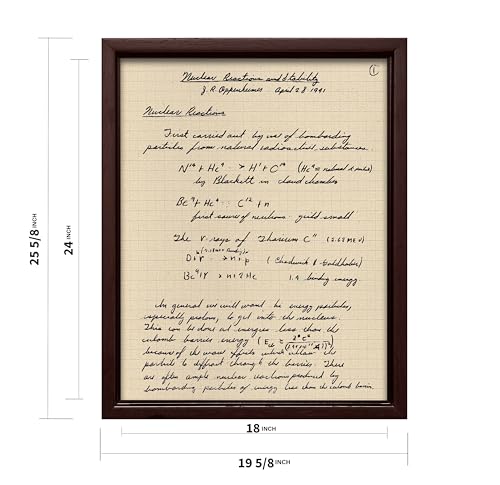 ①
Nuclear Reactions and Stability
J. R. Oppenheimer April 28 1941
Nuclear Reactions
First carried out by use of bombarding
particles from natural radioactive substances
N¹⁴ + He⁴ → H¹ + C¹⁴ (He⁴ = natural α particles)
by Blackett in cloud chamber
Be⁹ + He⁴ C¹² + n
first source of neutrons yield small
The γ-rays of Thorium C" (2.62 MEV)
D + γ → n + p (Chadwick & Goldhaber)
Be⁹ γ → n + 2He 1.9 binding energy
In general we will want be energy particles,
especially protons, to get into the nucleus.
This can be done at energies less than the
coulomb barrier energy
because of the wave effects which allow the
particle to diffract through the barrier. There
are often ample nuclear reactions produced by
bombarding particles of energy less than the coulomb barrier
25 5/8 INCH
24 INCH
18 INCH
19 5/8 INCH